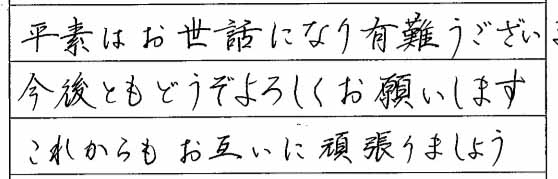 平素はお世話になり有難うござい
今後ともどうぞよろしくお願いします
これからもお互いに頑張りましょう